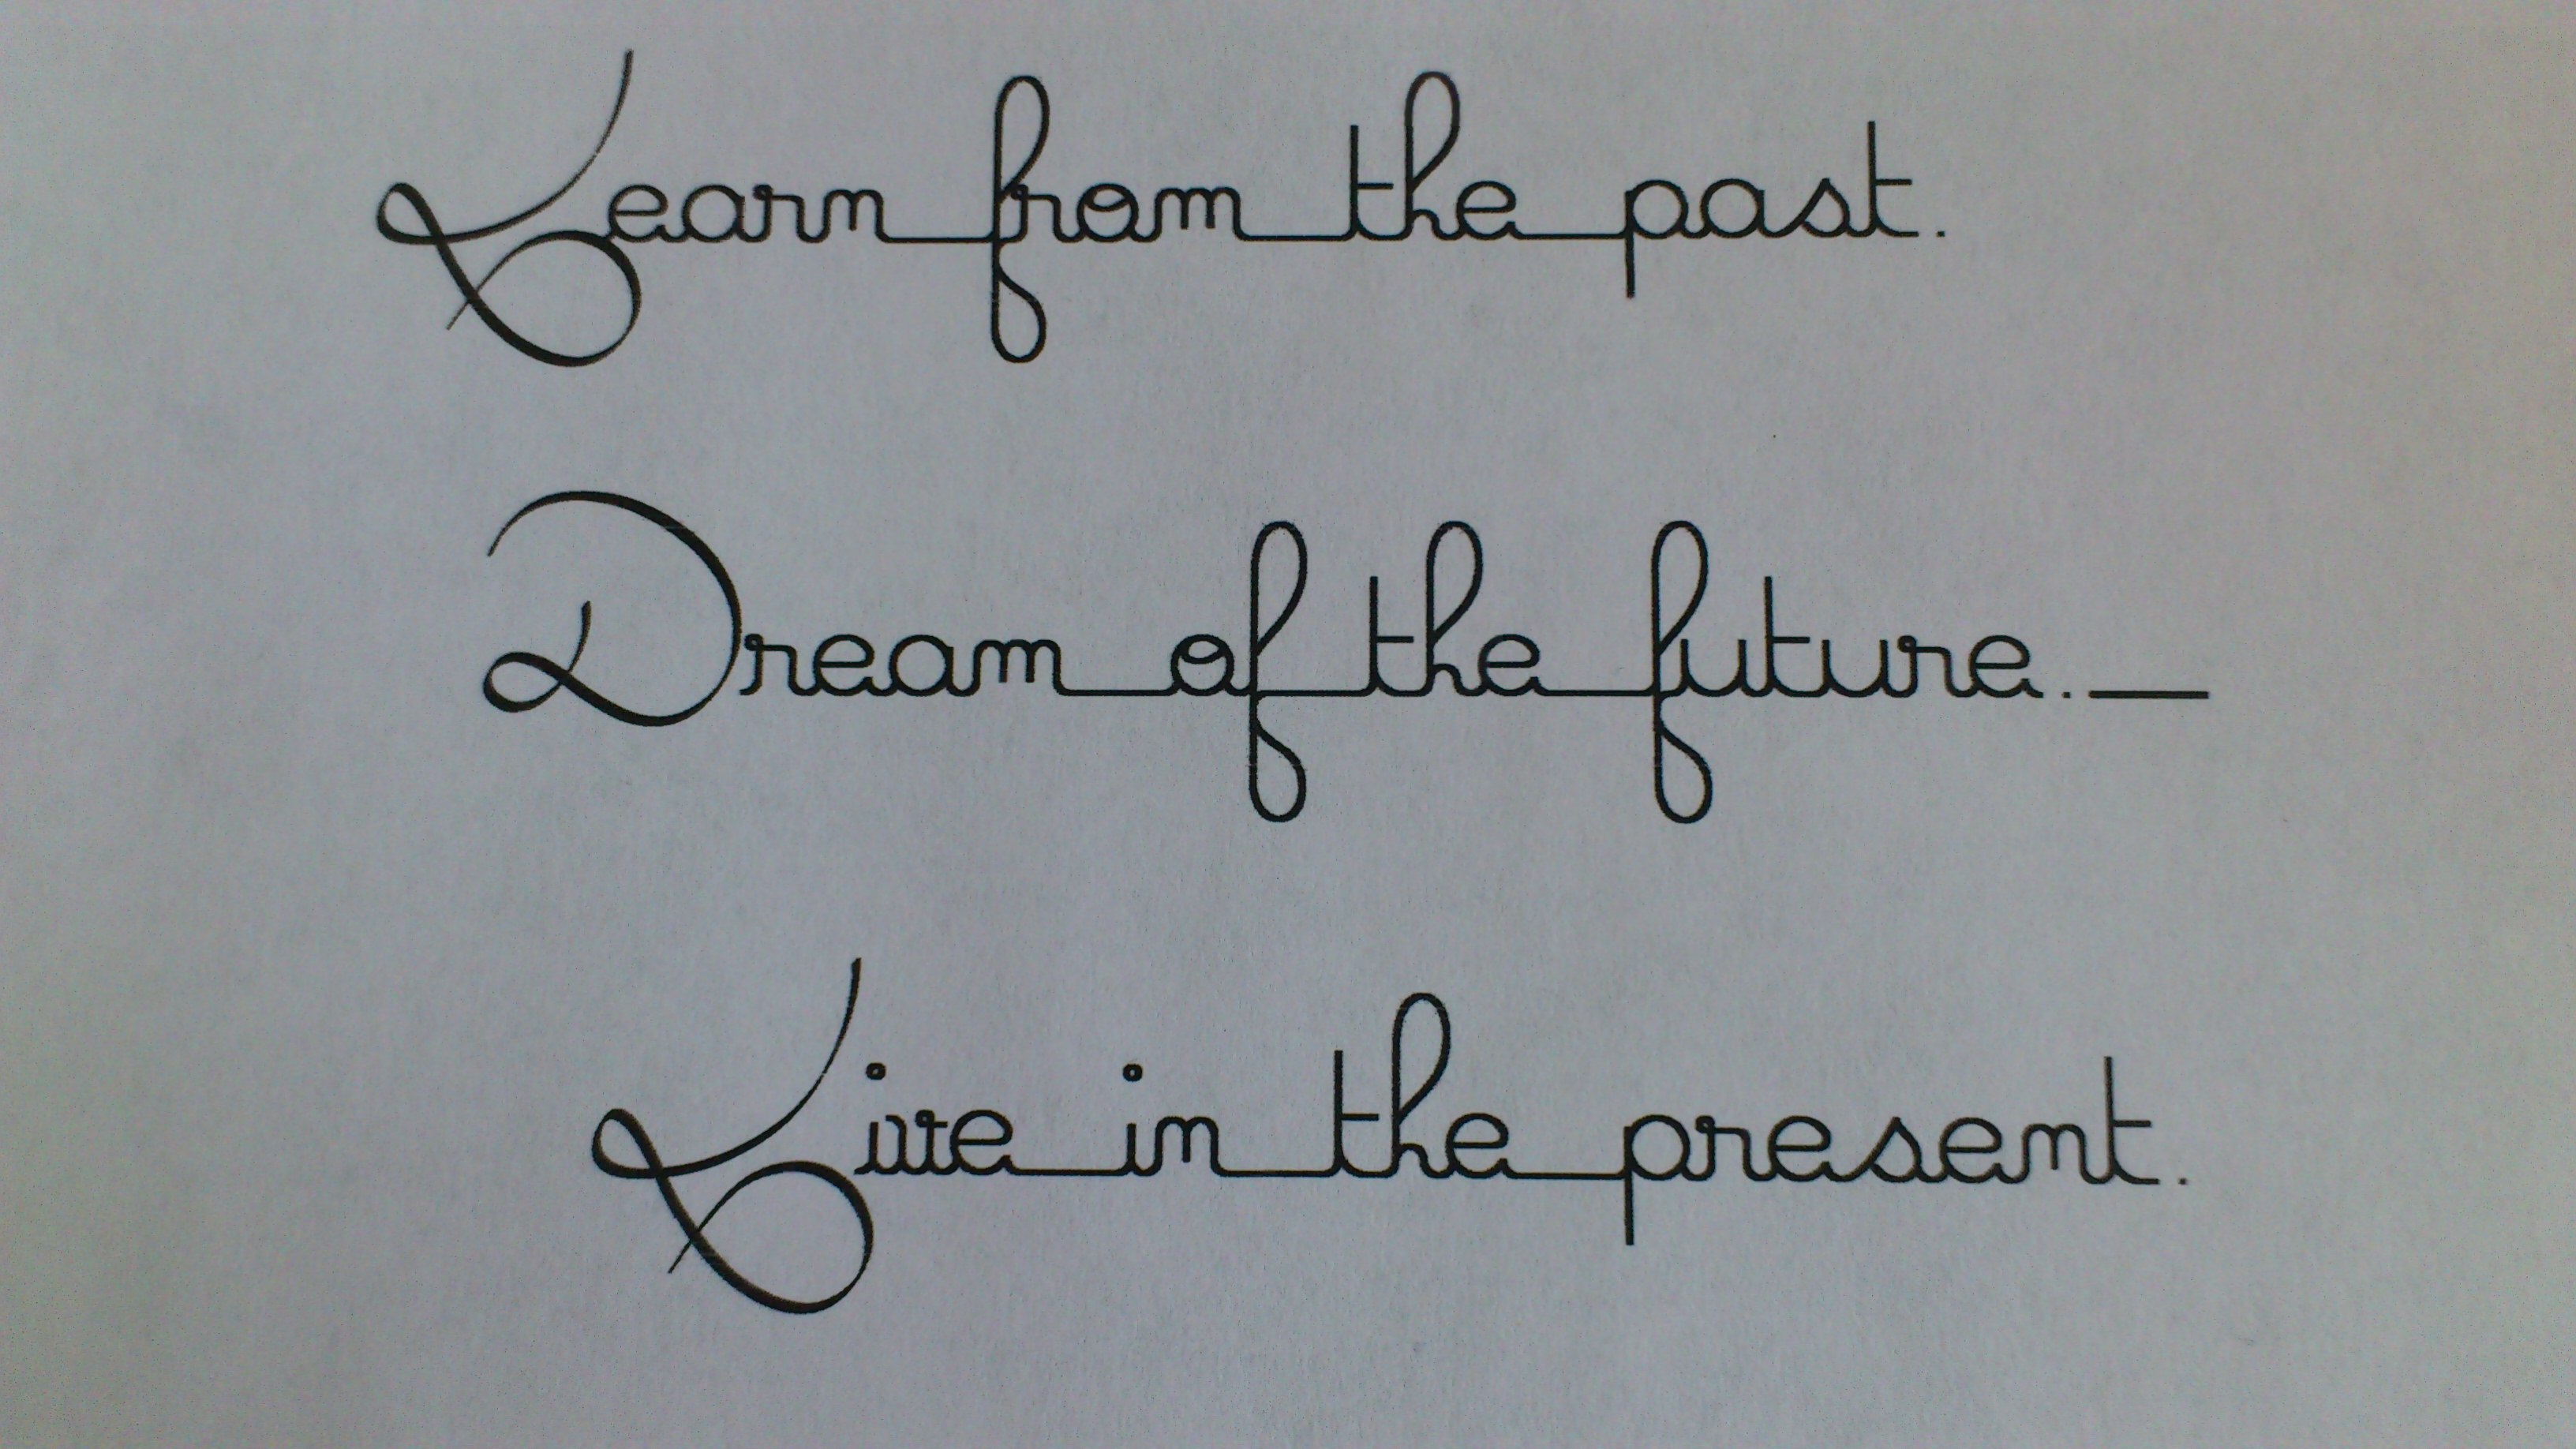 Learn from the past.
Dream of the future._
Live in the present.